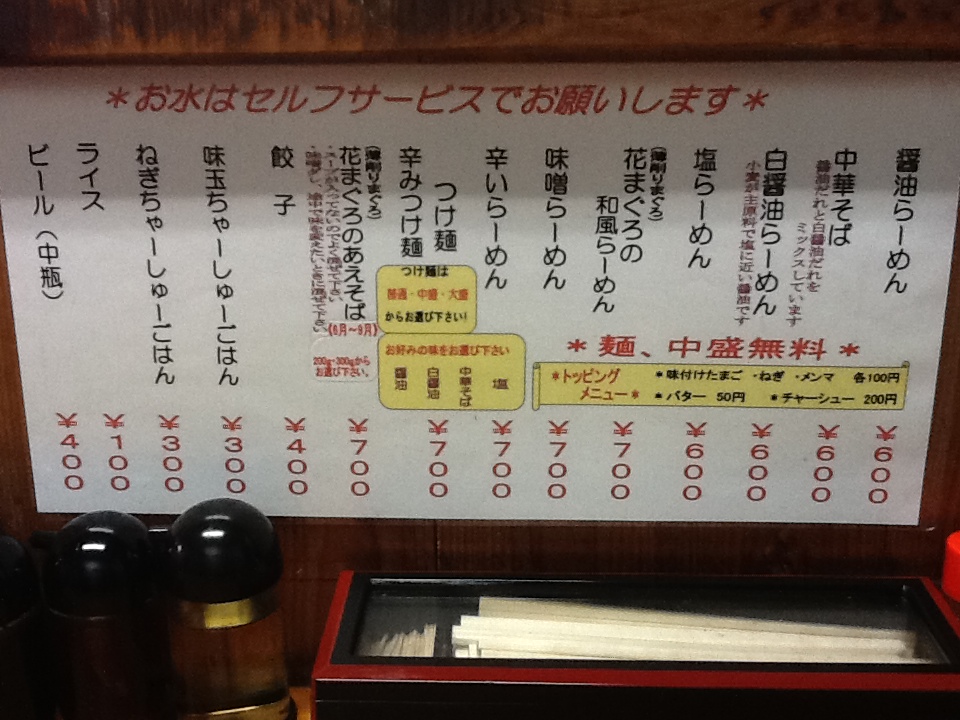 ＊お水はセルフサービスでお願いします＊
醤油らーめん
￥600
中華そば
醤油だれと白醤油だれを
ミックスしています
￥600
白醤油らーめん
小麦が主原料で塩に近い醤油です
￥600
塩らーめん
￥600
(薄削りまぐろ)
花まぐろの
和風らーめん
￥700
味噌らーめん
￥700
辛いらーめん
￥700
つけ麺
辛みつけ麺
￥700
つけ麺は
普通・中盛・大盛
からお選び下さい！
お好みの味をお選び下さい
塩
中華そば
白醤油
醤油
(薄削りまぐろ)
花まぐろのあえそば
・スープが入ってないのでよく混ぜて下さい、
・味噌だし、途中で味を変えたいときに混ぜて下さい
《6月～9月》
200g・300gから
お選び下さい。
￥700
餃子
￥400
味玉ちゃーしゅーごはん
￥300
ねぎちゃーしゅーごはん
￥300
ライス
￥100
ビール（中瓶）
￥400
＊麺、中盛無料＊
＊トッピング
メニュー＊
＊味付けたまご ・ねぎ ・メンマ 各100円
＊バター 50円 ＊チャーシュー 200円